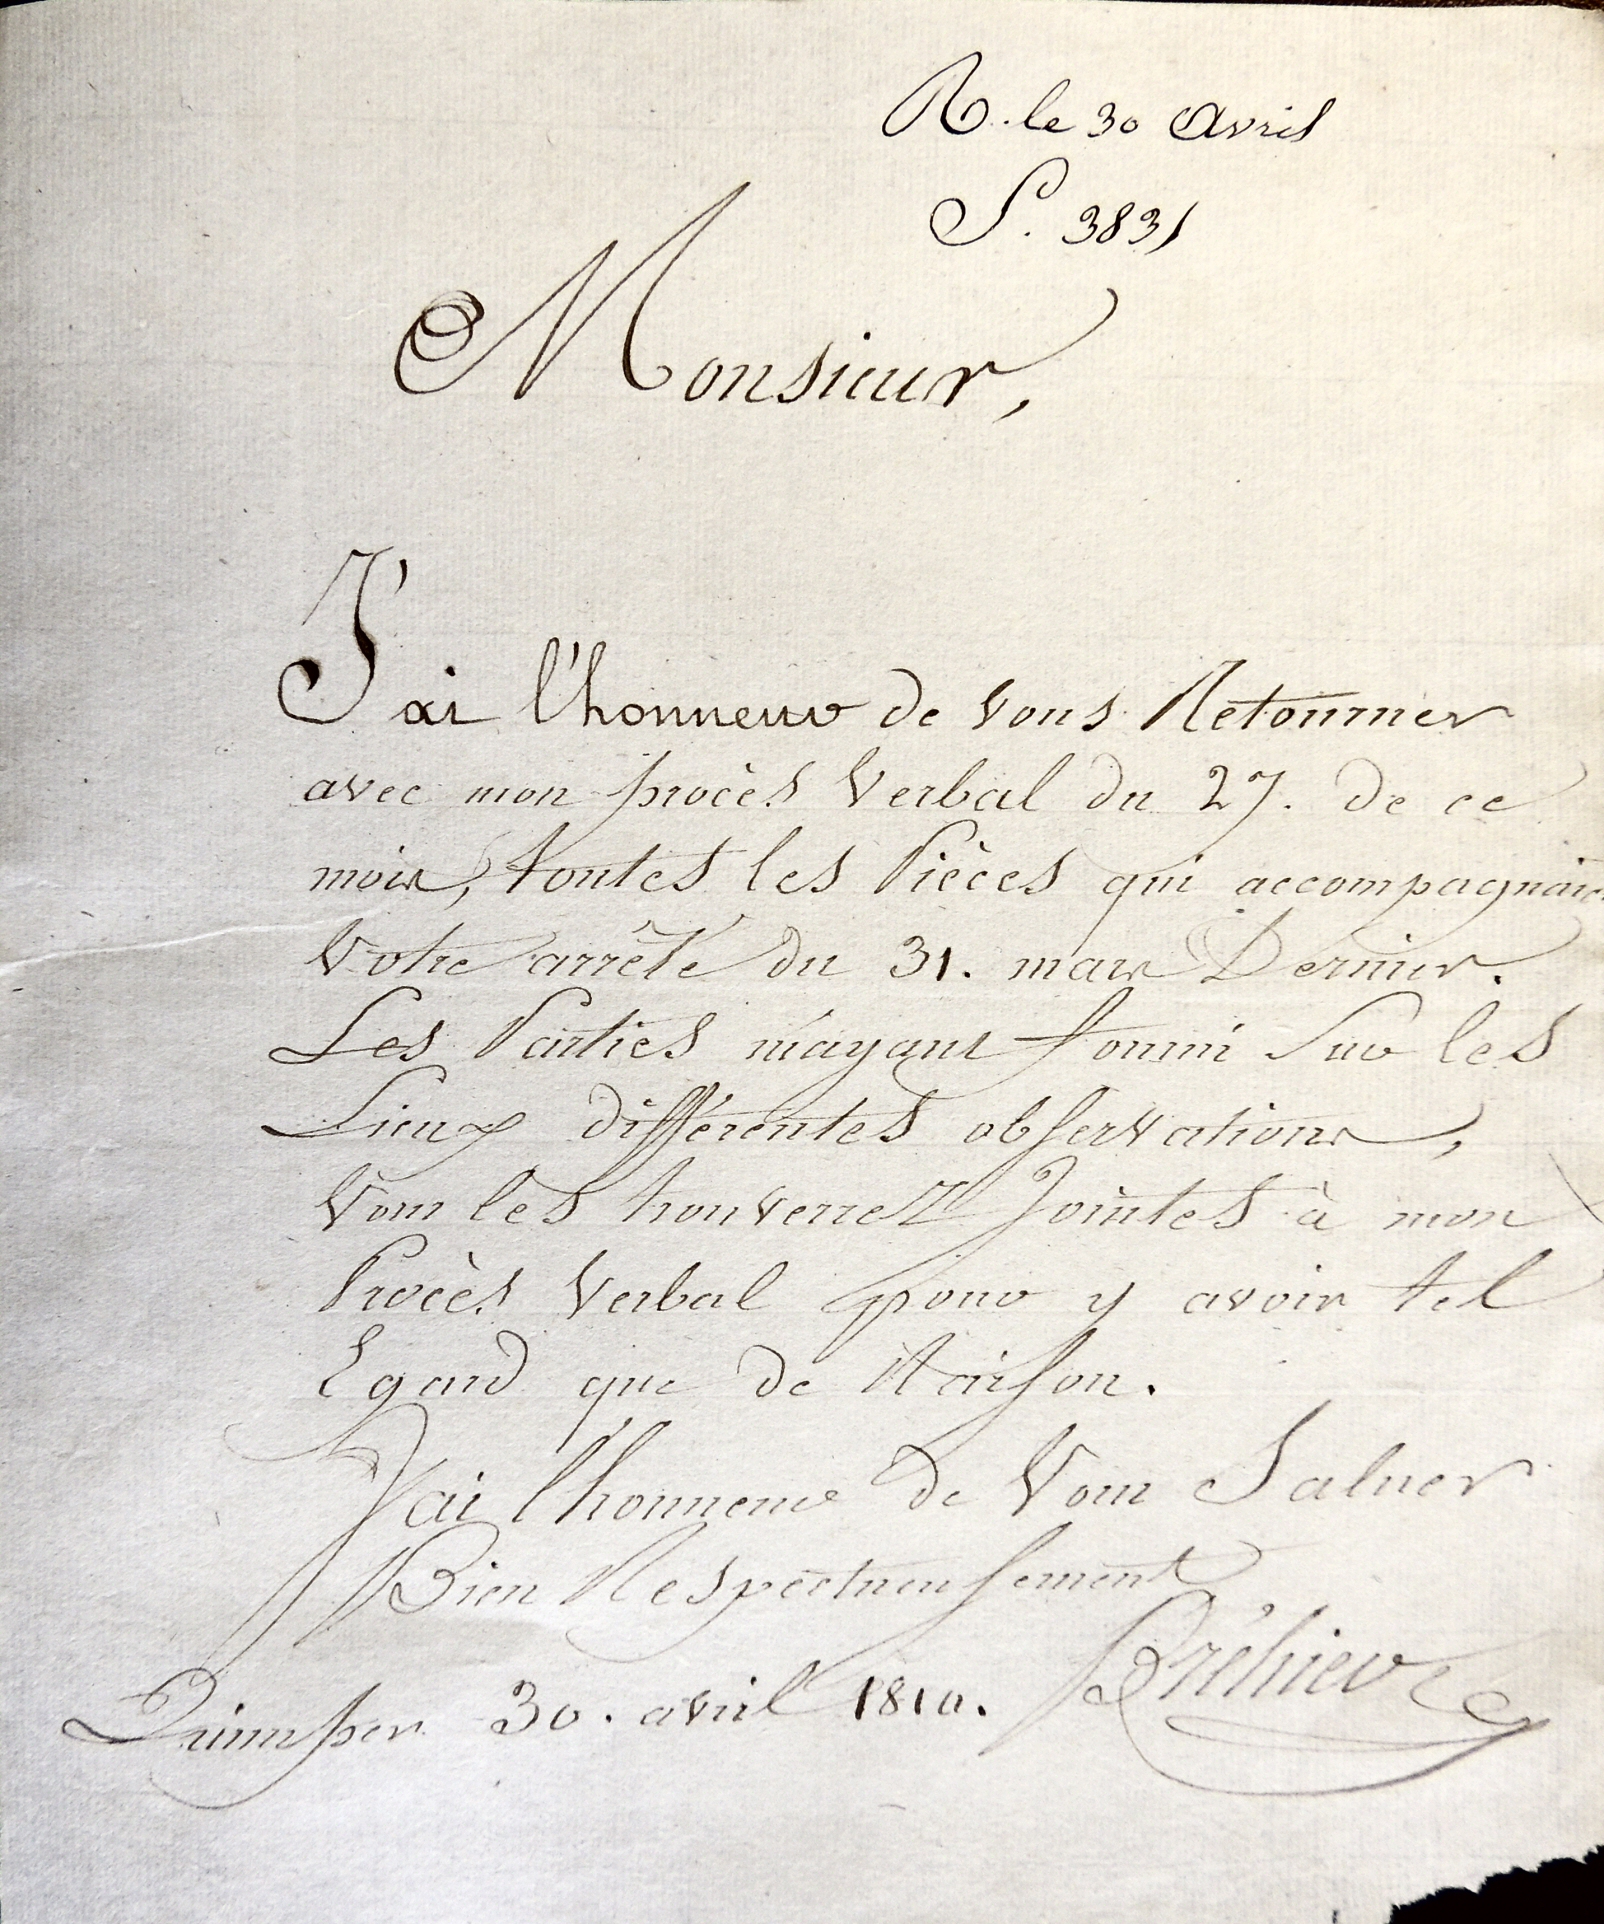 R. le 30 Avril
S. 3831
Monsieur,
J'ai l'honneur de vous Retourner
avec mon procès Verbal du 27. de ce
mois, toutes les Pièces qui accompagnaie
Votre arrêté du 31. mars Dernier.
Les Parties m'ayant fourni Sur les
Lieux différentes observations,
Vous les trouverrez Jointes à mon
Procès Verbal pour y avoir tel
Egard que de Raison.
J'ai l'honneur de Vous Saluer
Bien Respectueusement
Bréhier
Quimper 30. avril 1810.